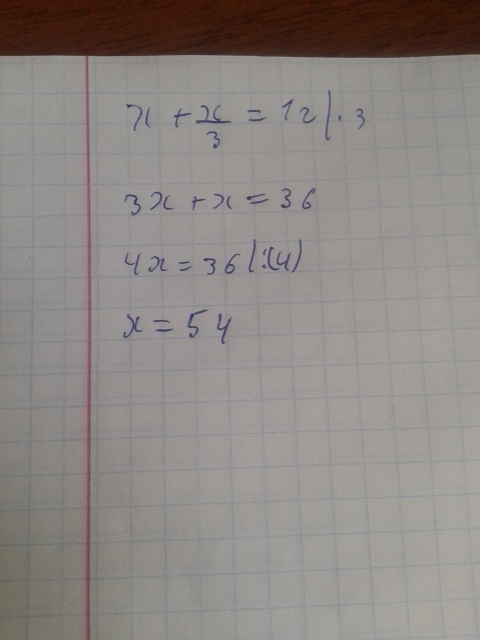 x + x/3 = 12 | · 3
3x + x = 36
4x = 36 | :(4)
x = 54